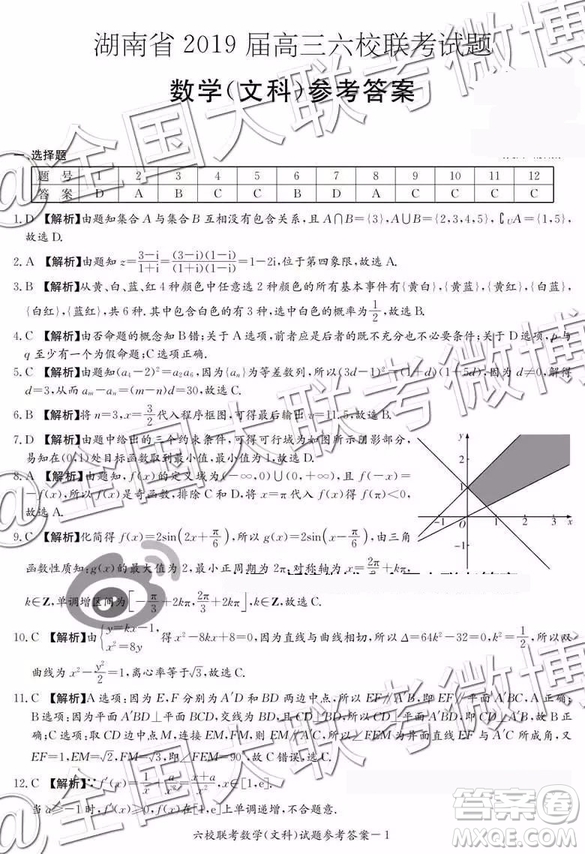 湖南省 2019 届高三六校联考试题
数学(文科)参考答案
一、选择题
题号 1 2 3 4 5 6 7 8 9 10 11 12
答案 D A B C C B D A C C C C
1.D 【解析】由题知集合A与集合B互相没有包含关系,且A∩B={3},A∪B={2,3,4,5},∁UA={1,5},
故选D.
2.A 【解析】由题知z=(3-i)/(1+i)=(3-i)(1-i)/((1+i)(1-i))=1-2i,位于第四象限,故选A.
3.B 【解析】从黄、白、蓝、红4种颜色中任意选2种颜色的所有基本事件有{黄白},{黄蓝},{黄红},{白蓝},
{白红},{蓝红},共6种.其中包含白色的有3种,选中白色的概率为1/2,故选B.
4.C 【解析】由否命题的概念知B错;关于A选项,前者应是后者的既不充分也不必要条件;关于D选项,p与
q至少有一个为假命题;C选项正确.
5.C 【解析】由题知(a₄-2)²=a₂a₆,因为{aₙ}为等差数列,所以(3d-1)²=(1+d)(1+5d),因为d≠0,解得
d=3,从而aₘ-aₙ=(m-n)d=30,故选C.
6.B 【解析】将n=3,x=3/2代入程序框图,可以输出的结果为v=11.5,故选B.
7.D 【解析】由题中给出的三个约束条件,可得可行域为如图所示阴影部分,
易知在(0,1)处目标函数取到最小值,最小值为1,故选D.
8.A 【解析】由题知,f(x)的定义域为(-∞,0)∪(0,+∞),且f(-x)=
-f(x),所以f(x)是奇函数,排除C和D,将x=π代入f(x)得f(π)<0,
故选A.
y
2
1
-1 O 1 2 3 x
-1
9.C 【解析】化简得f(x)=2sin(2x+π/6),所以g(x)=2sin(x+π/6),由三角
函数性质知:g(x)的最大值为2,最小正周期为2π,对称轴为x=π/3+kπ,
k∈Z,单调增区间为[-2π/3+2kπ,π/3+2kπ],k∈Z,故选C.
10.C 【解析】由{y=kx-1, x²=8y 得x²-8kx+8=0,因为直线与曲线相切,所以Δ=64k²-32=0,k²=1/2,所以双
曲线为x²-y²/2=1,离心率等于√3,故选C.
11.C 【解析】A选项:因为E,F分别为A′D和BD两边中点,所以EF∥A′B,即EF∥平面A′BC;
B选项:因为平面A′BD⊥平面BCD,交线为BD,且CD⊥BD,所以CD⊥平面A′BD,即A′B⊥CD;
C选项:取CD边中点M,连接EM,FM,则EM∥A′C,所以∠FEM为异面直线EF与A′C所成角,又
EF=1,EM=√2,FM=√3,即∠FEM=90°,故选C.
12.C 【解析】∵f′(x)=1/x+a/x²=(x+a)/x²,x∈[1,e].
当a≥0时,f(x)在[1,e]上单调递增,不合题意.
六校联考数学(文科)试题参考答案-1
@全国大联考微博
答案圈